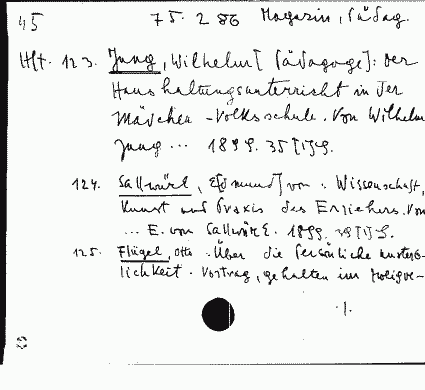 45 75. 2 86 Magazin, Pädag.
Hft. 123. Jung, Wilhelm [Pädagoge]: Der
Haushaltungsunterricht in der
Mädchen-Volksschule. Von Wilhelm
Jung ... 1899. 35 [1] S.
124. Sallwürk, E[dmund] von: Wissenschaft,
Kunst und Praxis des Erziehers. Von
... E. von Sallwürk. 1899. S.
125. Flügel, Otto: Über die persönliche Unsterb-
lichkeit. Vortrag, gehalten im
./.